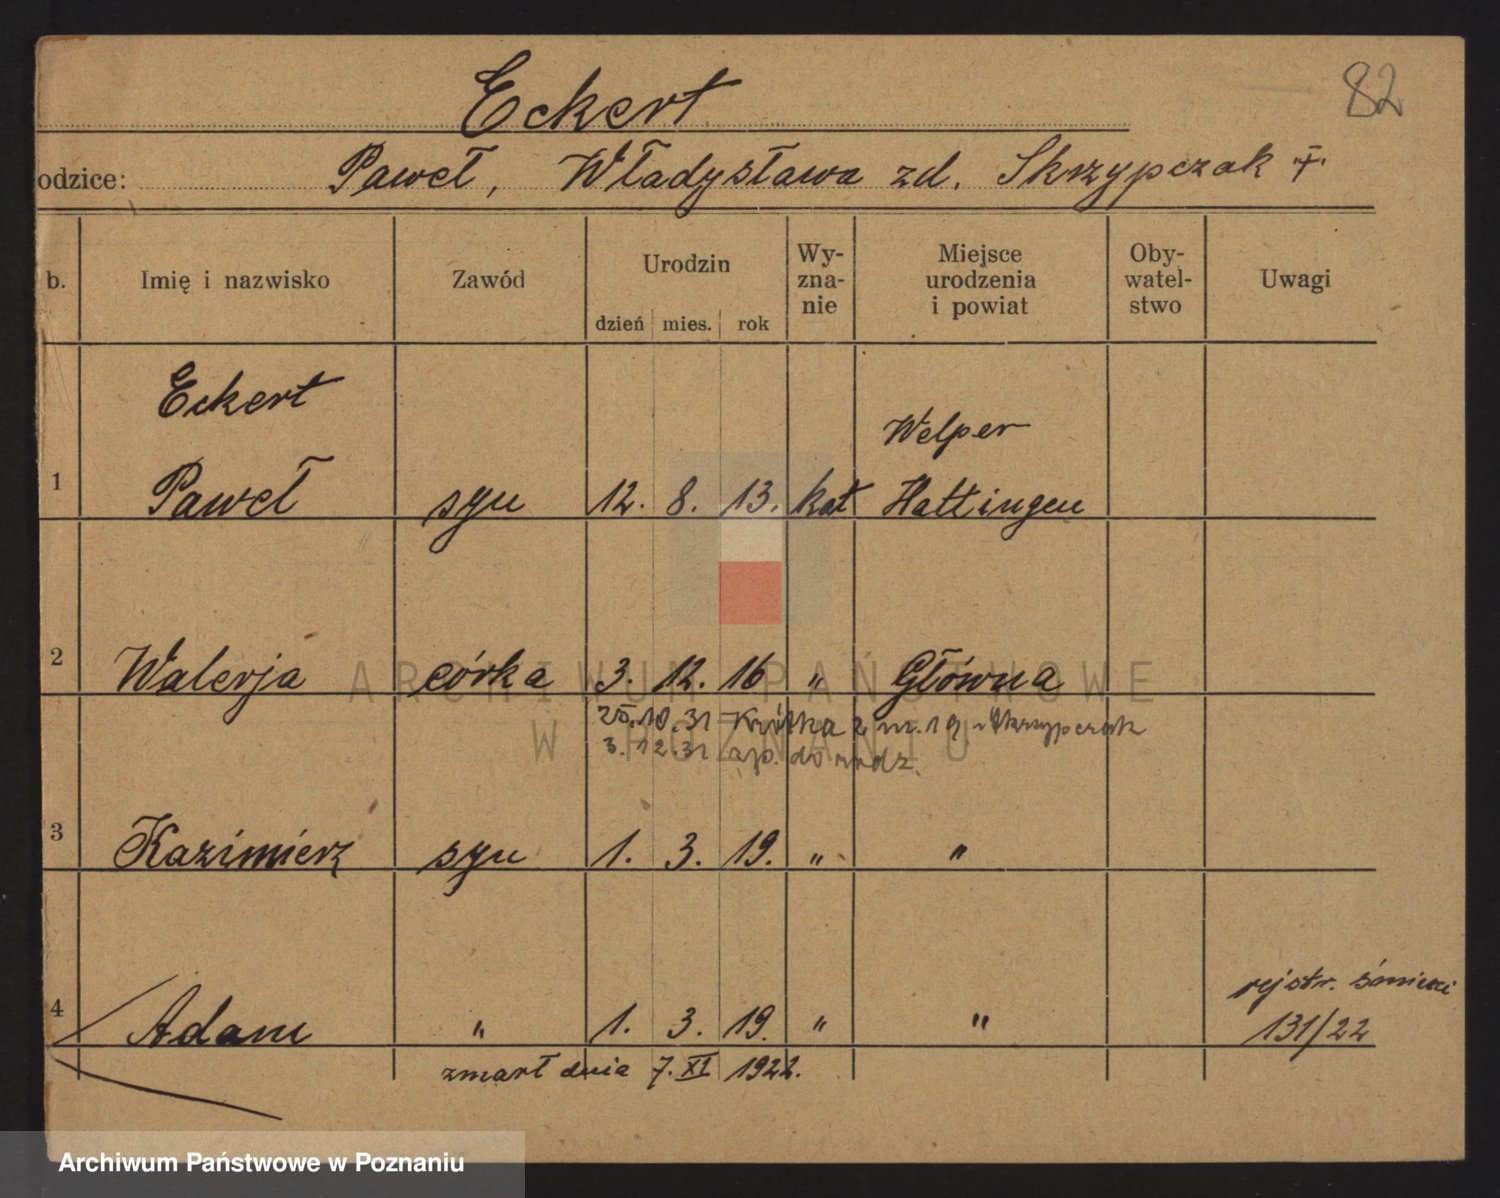 82
Eckert
odzice: Paweł, Władysława zd. Skrzypczak
b. Imię i nazwisko Zawód Urodzin dzień mies. rok Wy-zna-nie Miejsce urodzenia i powiat Oby-watel-stwo Uwagi
Eckert
Welper
1 Paweł syn 12. 8. 13. kat Hattingen
2 Walerja córka 3. 12. 16 „ Główna
25.10.31 Krótka 2 m. 19 Skrzypczak
3.12.31 do rodz.
3 Kazimierz syn 1. 3. 19. „ „
rejstr. śmierci
4 Adam „ 1. 3. 19. „ „ 131/22
zmarł dnia 7. XI 1922.
ARCHIWUM PAŃSTWOWE
W POZNANIU
Archiwum Państwowe w Poznaniu